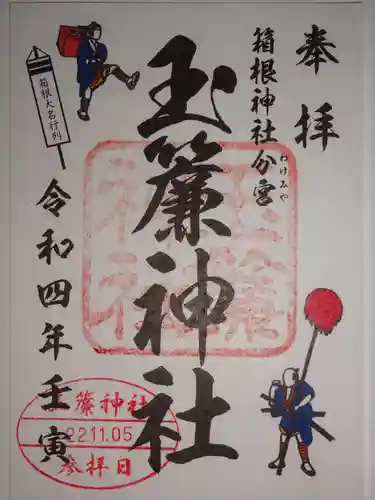 奉拝
箱根神社分宮
わけみや
玉簾神社
箱根大名行列
令和四年壬寅
玉簾神社
22.11.05
参拝日